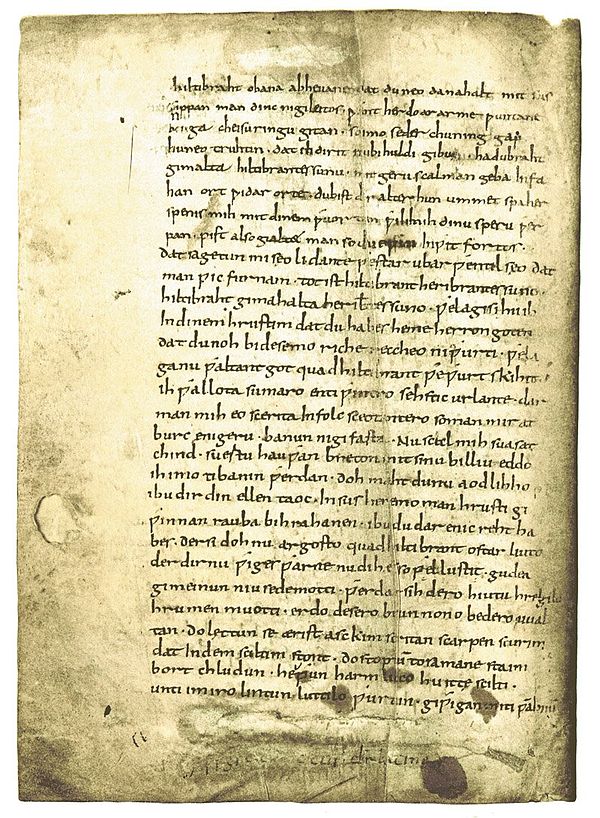 hiltibraht obana abheuane dat du neo danahalt mit sus
sippan man dinc ni gileitos. ƿant her do ar arme ƿuntane
bouga cheisuringu gitan. so imo seder chuning gap
huneo truhtin. dat ih dir it nu bi huldi gibu. hadubraht
gimalta hiltibrantes sunu. mit geru scal man geba infa
han ort ƿidar orte. du bist dir alter hun ummet spaher
spenis mih mit dinem ƿuortun ƿilihuh dinu speru ƿer
pan. pist also gialtet man so du eƿin inƿit fortos.
dat sagetun mi seo lidante ƿestar ubar ƿentilseo dat
man ƿic furnam. tot ist hiltibrant heribrantes suno.
hiltibraht gimahalta heribtes suno. ƿela gisihu ih
In dinem hrustim dat du habes heme herron goten
dat du noh bi desemo riche reccheo ni ƿurti. ƿela
ganu ƿaltant got quad hiltibrant ƿeƿurt skihit.
ih ƿallota sumaro enti ƿintro sehstic ur lante. dar
man mih eo scerita In folc sceotantero so man mir at
burc enigeru. banun ni gifasta. Nu scal mih suasat
chind. suertu hauƿan breton mit sinu billiu eddo
ih imo ti banin ƿerdan. doh maht du nu aodlihho
ibu dir din ellen taoc. In sus heremo man hrusti gi
ƿinnan rauba bihrahanen. ibu du dar enic reht ha
bes. der si doh nu argosto quad hiltibrant ostar liuto
der dir nu ƿiges ƿarne nu dih es so ƿel lustit. gudea
gimeinun niuse demotti. ƿerdar sih dero hiutu hregilo
hrumen muotti. erdo desero brunnono bedero uual
tan. do lettun se ærist asckim scritan scarpen scurim
dat In dem sciltim stont. do stoptū to samane staim
bort chludun. heƿun harmlicco huitte scilti.
unti im iro lintun luttilo ƿurtun. giƿigan miti ƿabnū